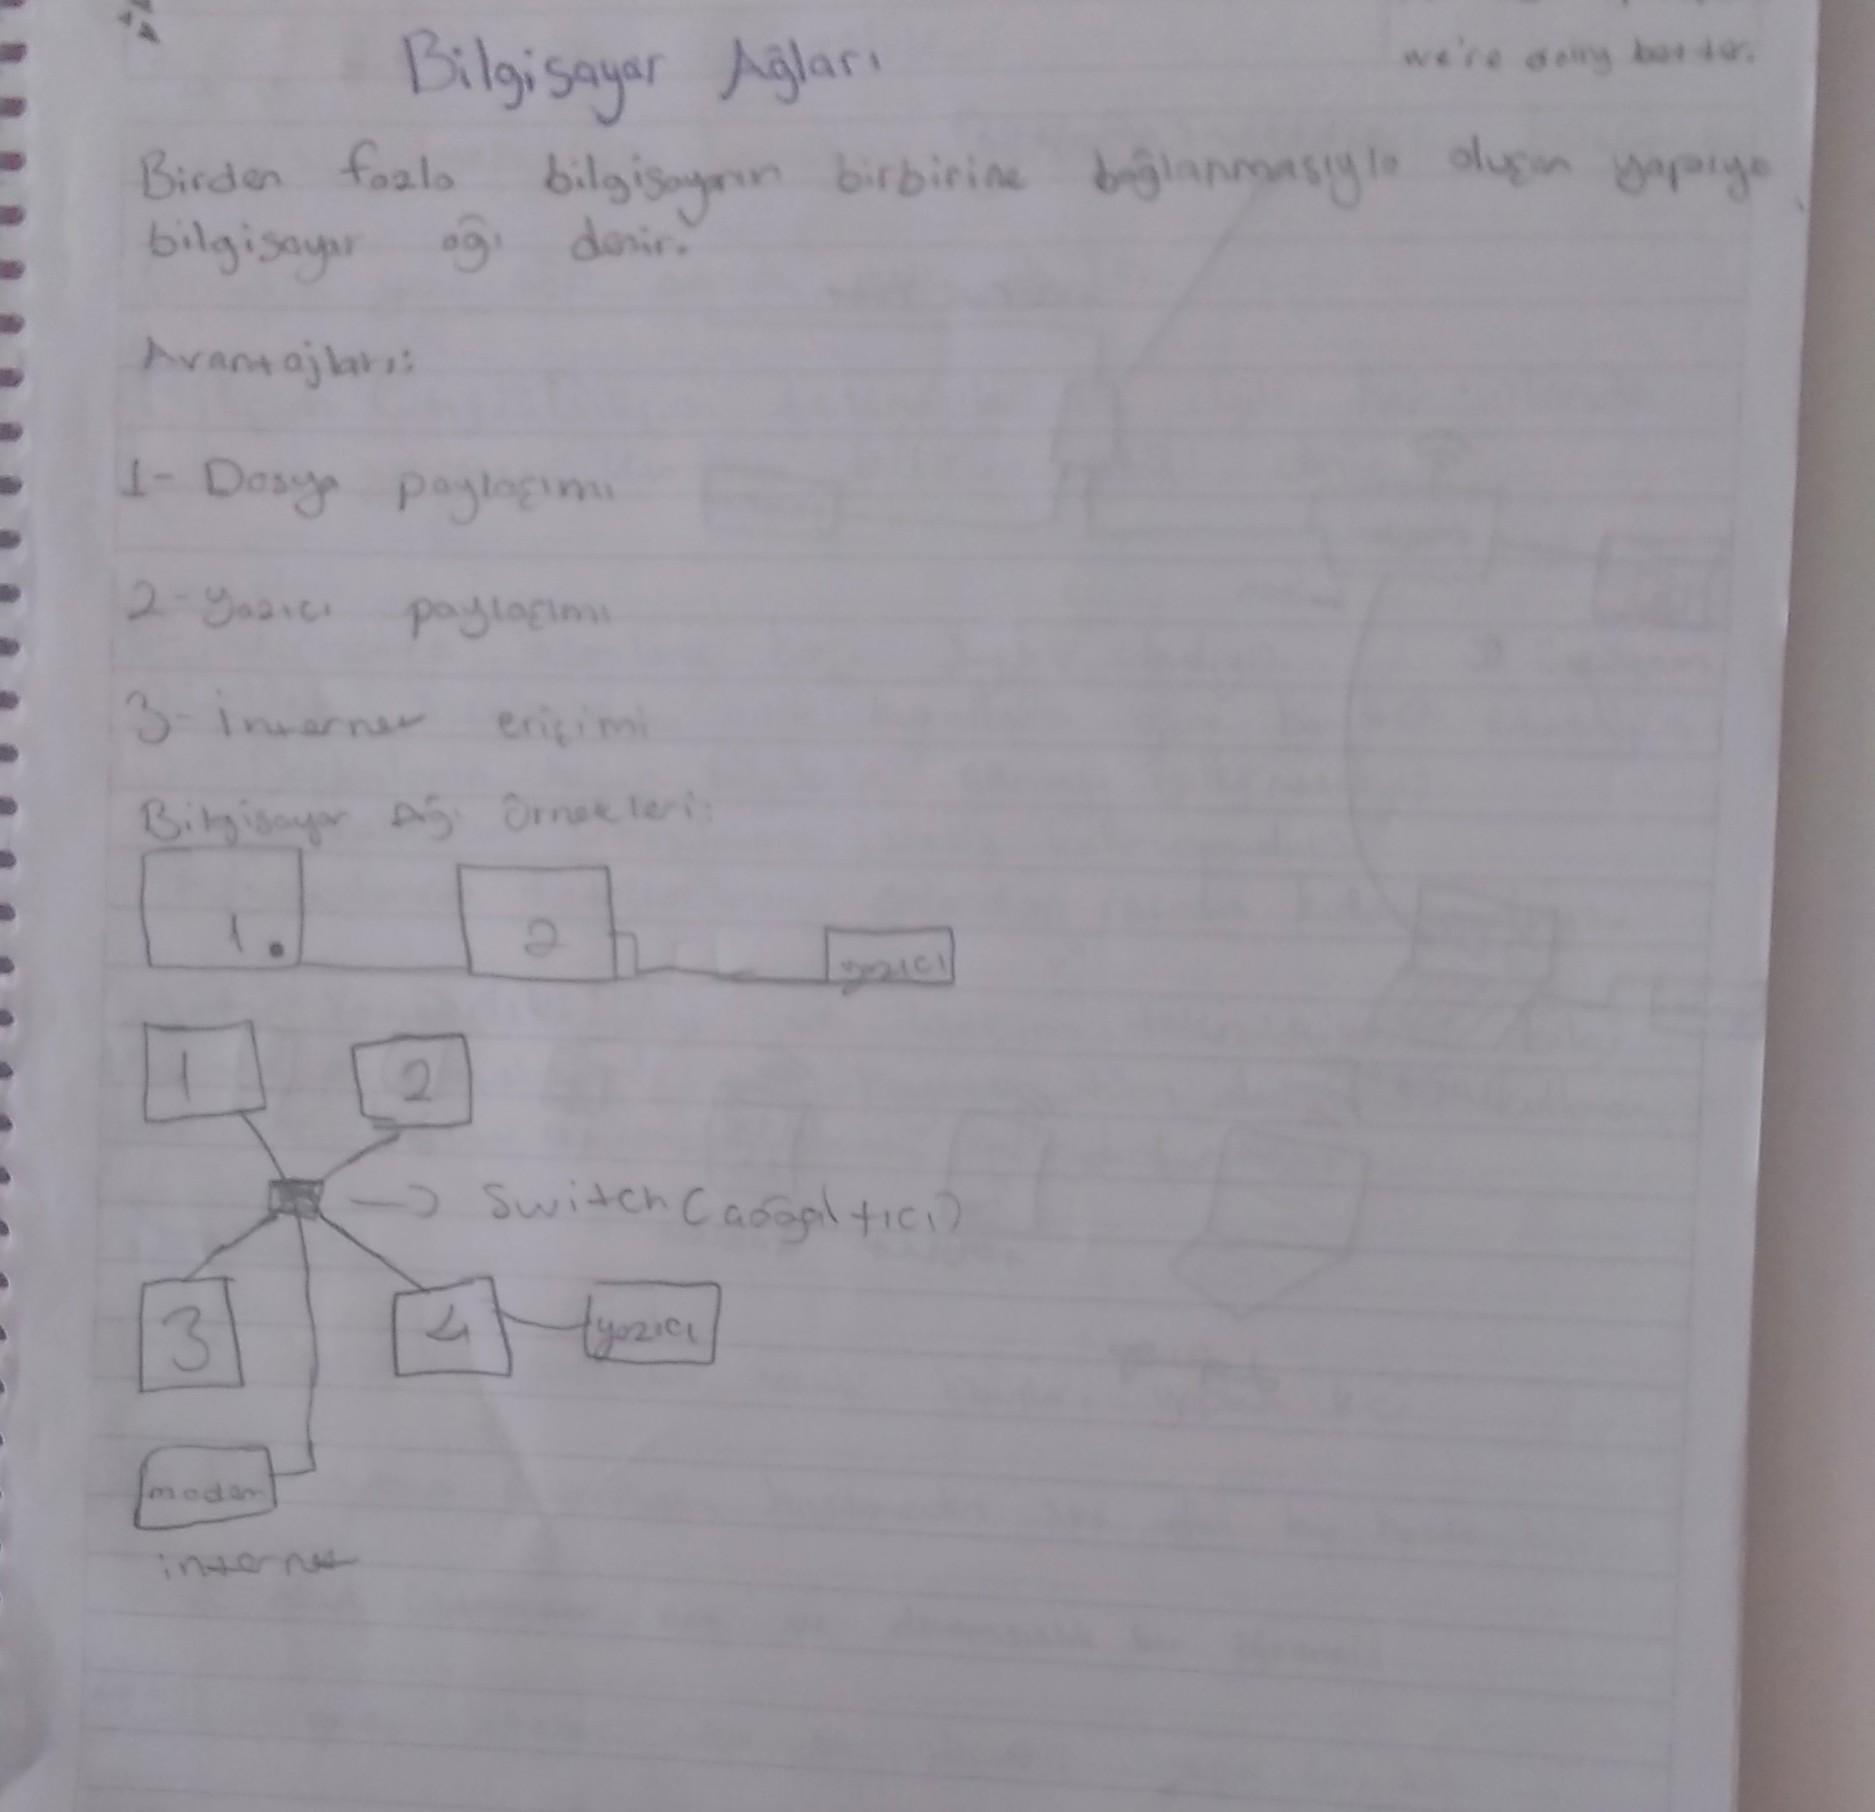 we're doing better.
Bilgisayar Ağları
Birden fazla bilgisayarın birbirine bağlanmasıyla oluşan yapıya
bilgisayar ağı denir.
Avantajları:
1- Dosya paylaşımı
2- yazıcı paylaşımı
3- internet erişimi
Bilgisayar Ağı Örnekleri:
1. 2 yazıcı
1 2
Switch
3 4 yazıcı
modem
internet